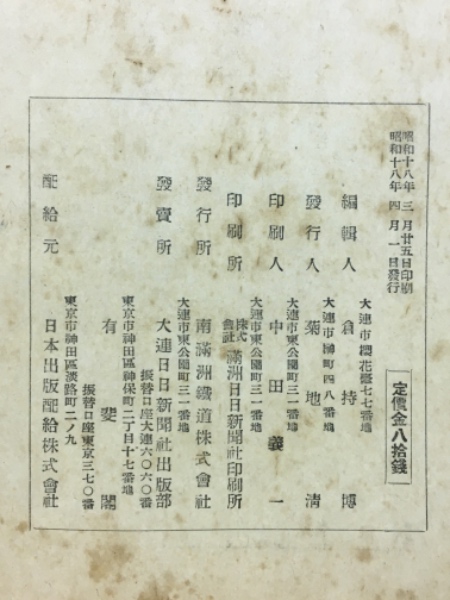 昭和十八年三月廿五日印刷
昭和十八年四月一日發行
定價金八拾錢
大連市櫻花臺七七番地
編輯人 倉持博
大連市榊町四八番地
發行人 菊地淸
大連市東公園町三一番地
印刷人 中田義一
大連市東公園町三一番地
印刷所 株式會社 滿洲日日新聞社印刷所
發行所 南滿洲鐵道株式會社
大連市東公園町三一番地
發賣所 大連日日新聞社出版部
振替口座大連六〇六〇番
東京市神田區神保町二丁目十七番地
有斐閣
振替口座東京三七〇番
東京市神田區淡路町二ノ九
配給元 日本出版配給株式會社